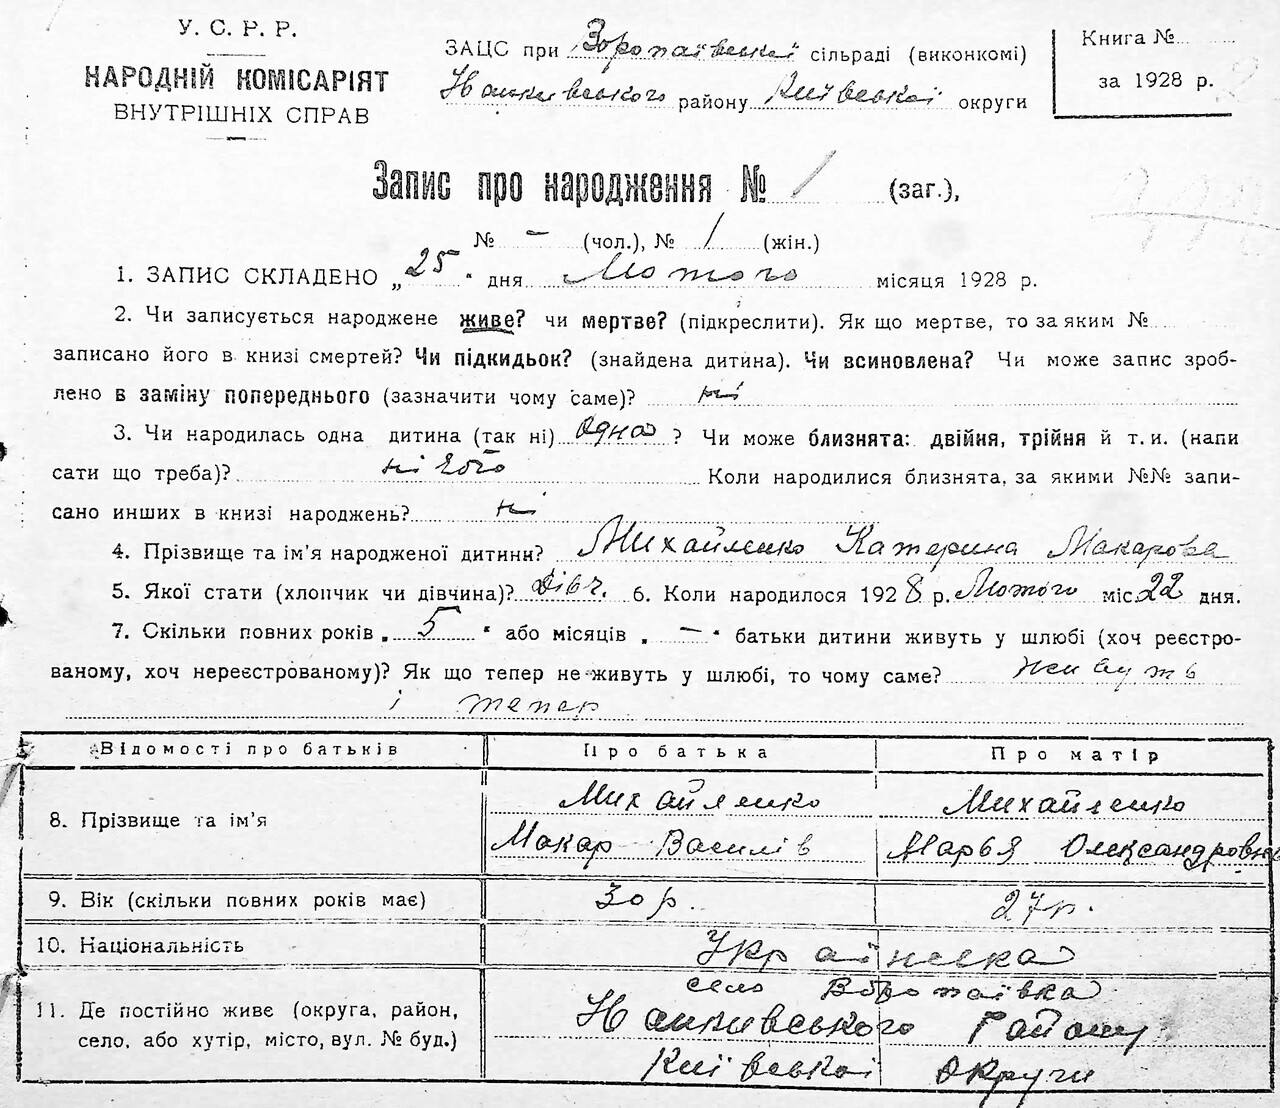 У. С. Р. Р.
НАРОДНІЙ КОМІСАРІЯТ
ВНУТРІШНІХ СПРАВ
ЗАЦС при Воропаївській сільраді (виконкомі)
району Київської округи
Книга №
за 1928 р.
Запис про народження № 1 (заг.),
№ – (чол.), № 1 (жін.)
1. ЗАПИС СКЛАДЕНО „25" дня Лютого місяця 1928 р.
2. Чи записується народжене живе? чи мертве? (підкреслити). Як що мертве, то за яким №
записано його в книзі смертей? Чи підкидьок? (знайдена дитина). Чи всиновлена? Чи може запис зроб-
лено в заміну попереднього (зазначити чому саме)? ні
3. Чи народилась одна дитина (так ні) одна ? Чи може близнята: двійня, трійня й т. и. (напи
сати що треба)? ні Коли народилися близнята, за якими №№ запи-
сано инших в книзі народжень? ні
4. Прізвище та ім'я народженої дитини? Михайленко Катерина Макарова
5. Якої стати (хлопчик чи дівчина)? дівч. 6. Коли народилося 1928 р. Лютого міс. 22 дня.
7. Скільки повних років „ 5 " або місяців „ — " батьки дитини живуть у шлюбі (хоч реєстро-
ваному, хоч нереєстрованому)? Як що тепер не живуть у шлюбі, то чому саме? живуть
і тепер
Відомості про батьків Про батька Про матір
8. Прізвище та ім'я
Михайленко Михайленко
Макар Василів Марья Олександровна
9. Вік (скільки повних років має) 30 р. 27 р.
10. Національність Українська
11. Де постійно живе (округа, район,
село, або хутір, місто, вул. № буд.)
село Воропаївка
Району
Київської округи